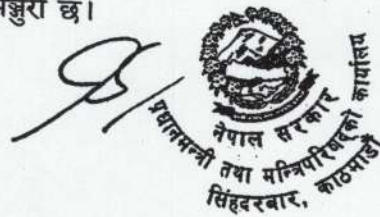 मञ्जुरी छ।
नेपाल सरकार
प्रधानमन्त्री तथा मन्त्रिपरिषद्को कार्यालय
सिंहदरबार, काठमाडौं